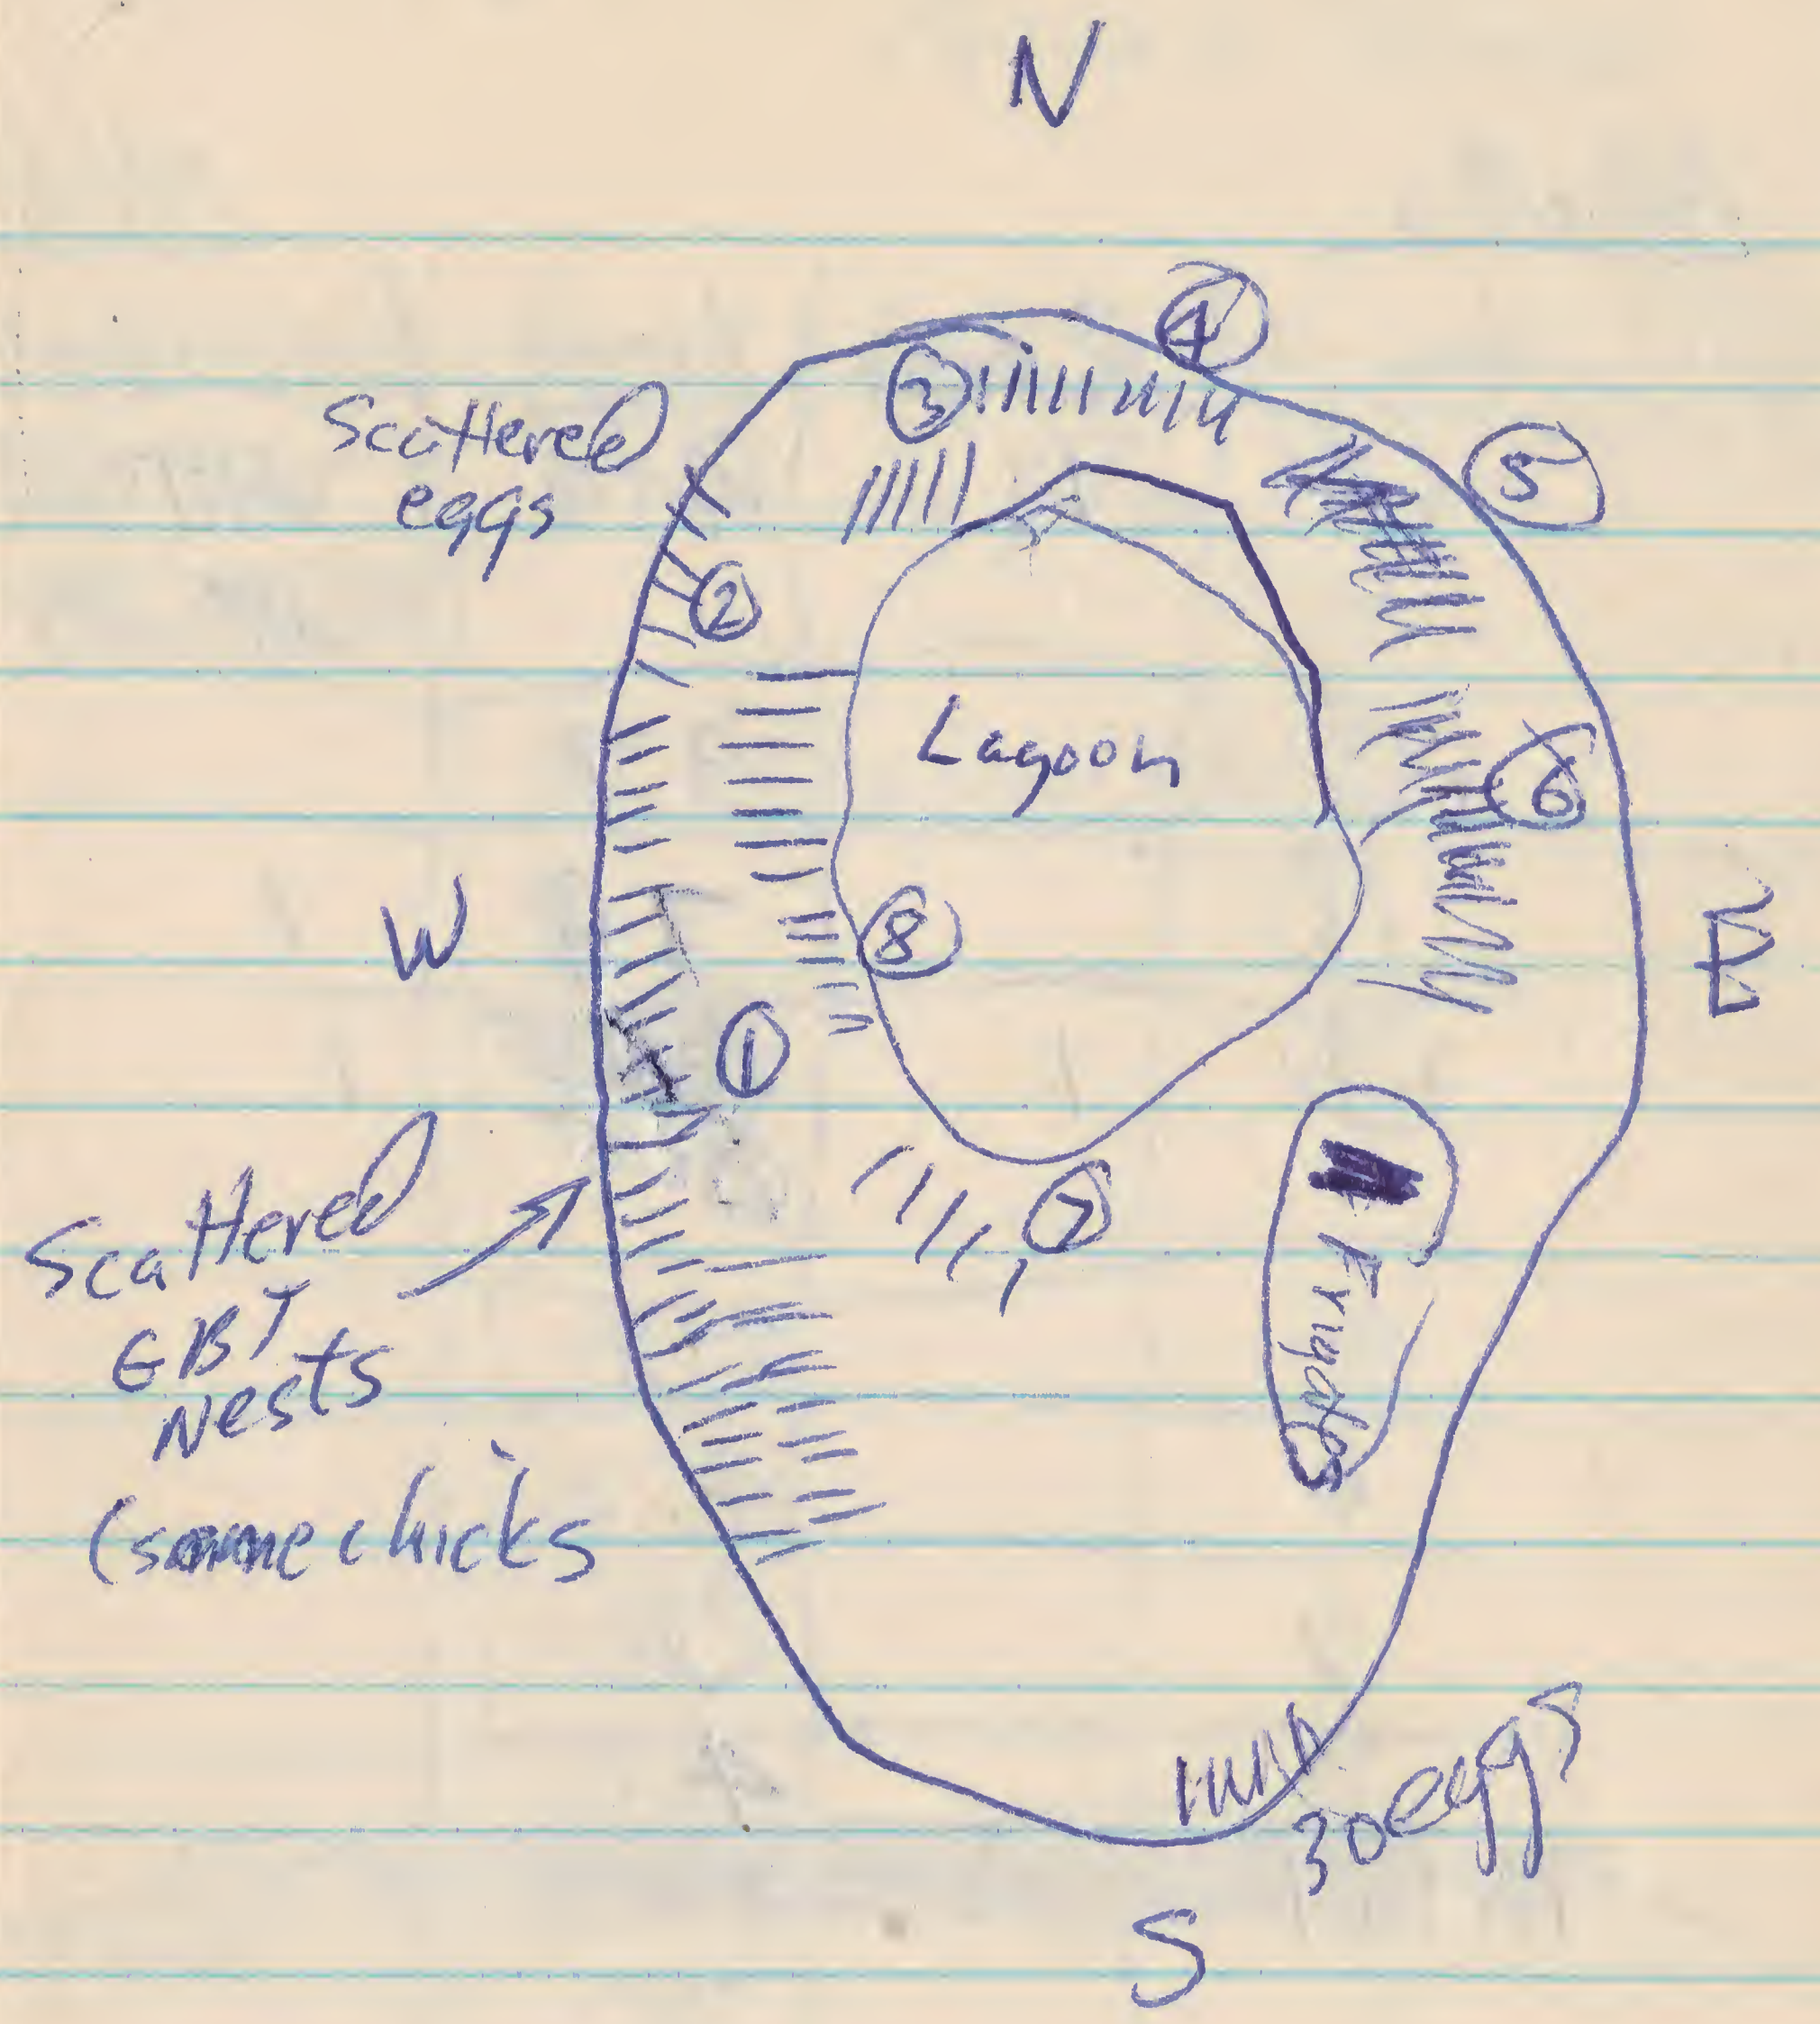 N
4
3
5
Scattered
eggs
2
6
Lagoon
W
8
E
1
Scattered
GBT
Nests
(some chicks
7
Frigates
30 eggs
S